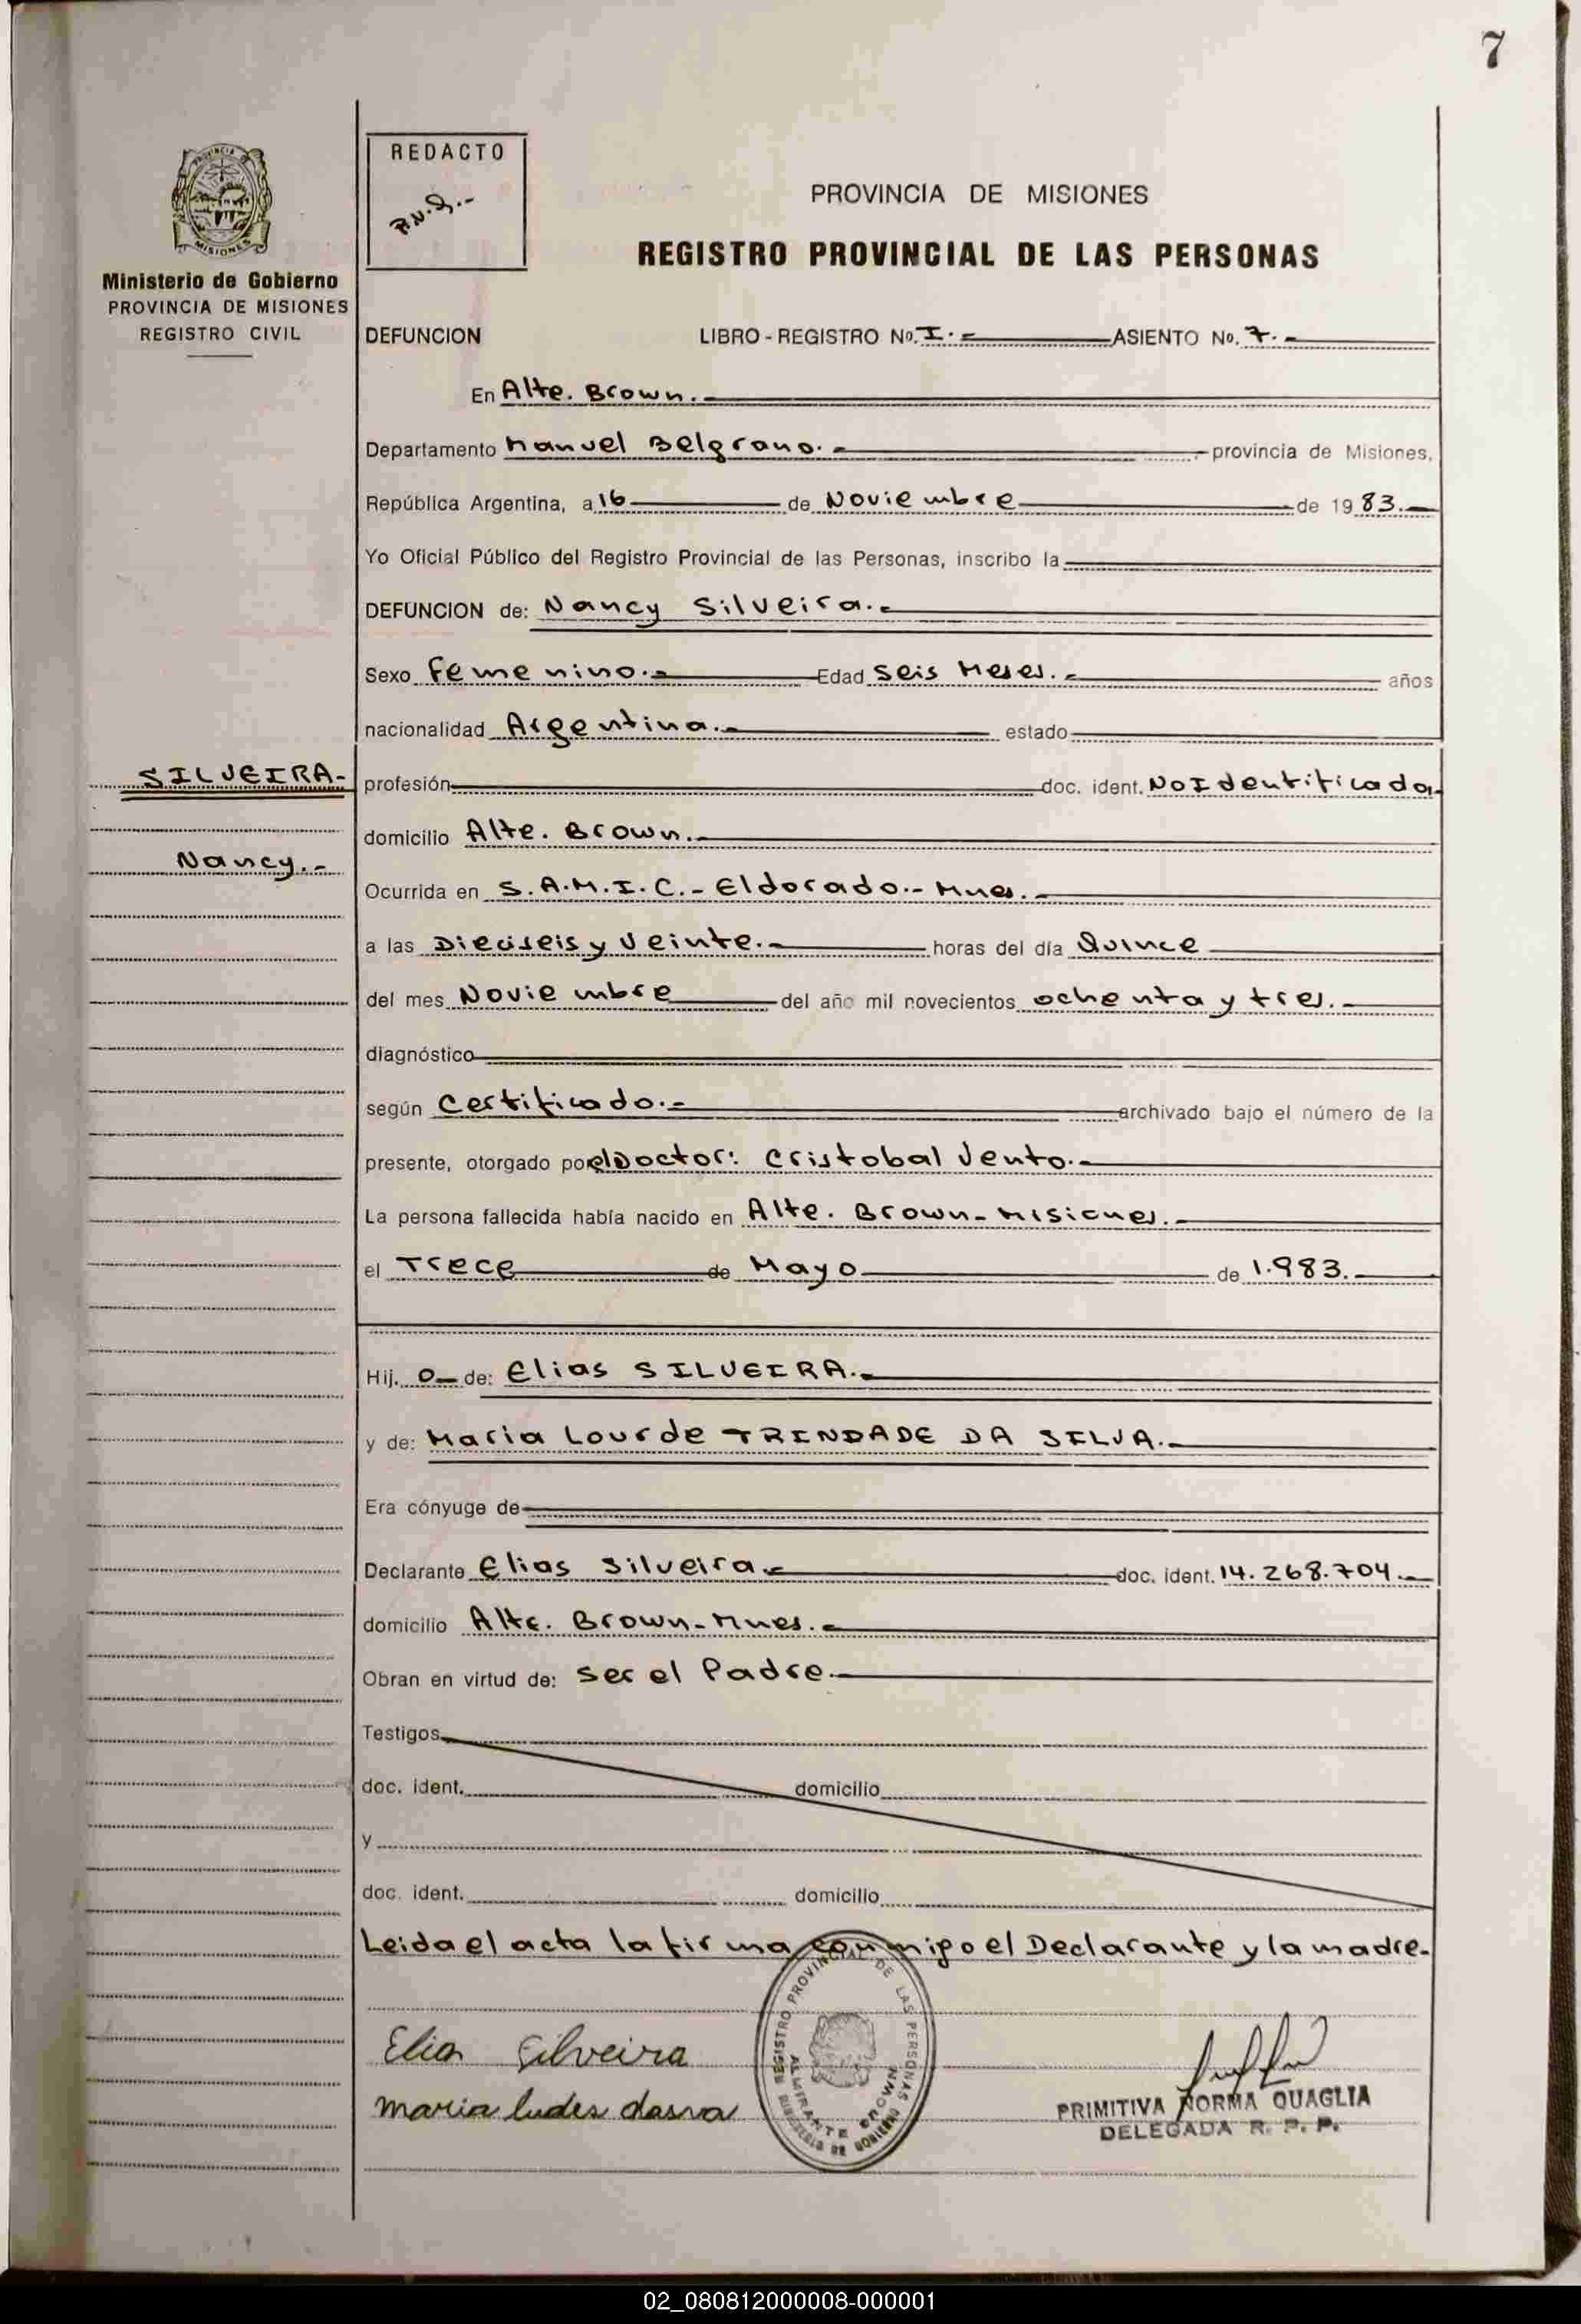 7
PROVINCIA DE
MISIONES
Ministerio de Gobierno
PROVINCIA DE MISIONES
REGISTRO CIVIL
REDACTO
P.N.Q.-
PROVINCIA DE MISIONES
REGISTRO PROVINCIAL DE LAS PERSONAS
DEFUNCION LIBRO - REGISTRO No. I.- ASIENTO No. 7.-
En Alte. Brown.-
Departamento Manuel Belgrano.- provincia de Misiones,
República Argentina, a 16 de Noviembre de 1983.-
Yo Oficial Público del Registro Provincial de las Personas, inscribo la
DEFUNCION de: Nancy Silveira.-
Sexo Femenino.- Edad Seis Meses.- años
nacionalidad Argentina.- estado
SILVEIRA-
Nancy.-
profesión doc. ident. No Identificada
domicilio Alte. Brown.-
Ocurrida en S.A.M.I.C.- Eldorado.- Mnes.-
a las Dieciseis y Veinte.- horas del día Quince
del mes Noviembre del año mil novecientos ochenta y tres.-
diagnóstico
según Certificado.- archivado bajo el número de la
presente, otorgado por el Doctor: Cristobal Vento.-
La persona fallecida había nacido en Alte. Brown- Misiones.-
el Trece de Mayo de 1.983.-
Hij. o de: Elias SILVEIRA.-
y de: Maria Lourde TRINDADE DA SILVA.-
Era cónyuge de
Declarante Elias Silveira.- doc. ident. 14.268.704.-
domicilio Alte. Brown- Mnes.-
Obran en virtud de: Ser el Padre.-
Testigos
doc. ident. domicilio
y
doc. ident. domicilio
Leida el acta la firma conmigo el Declarante y la madre.-
Elia Silveira
maria ludes dasva
REGISTRO PROVINCIAL DE LAS PERSONAS
ALMIRANTE BROWN
MINISTERIO DE GOBIERNO
PRIMITIVA NORMA QUAGLIA
DELEGADA R. P. P.
02_080812000008-000001